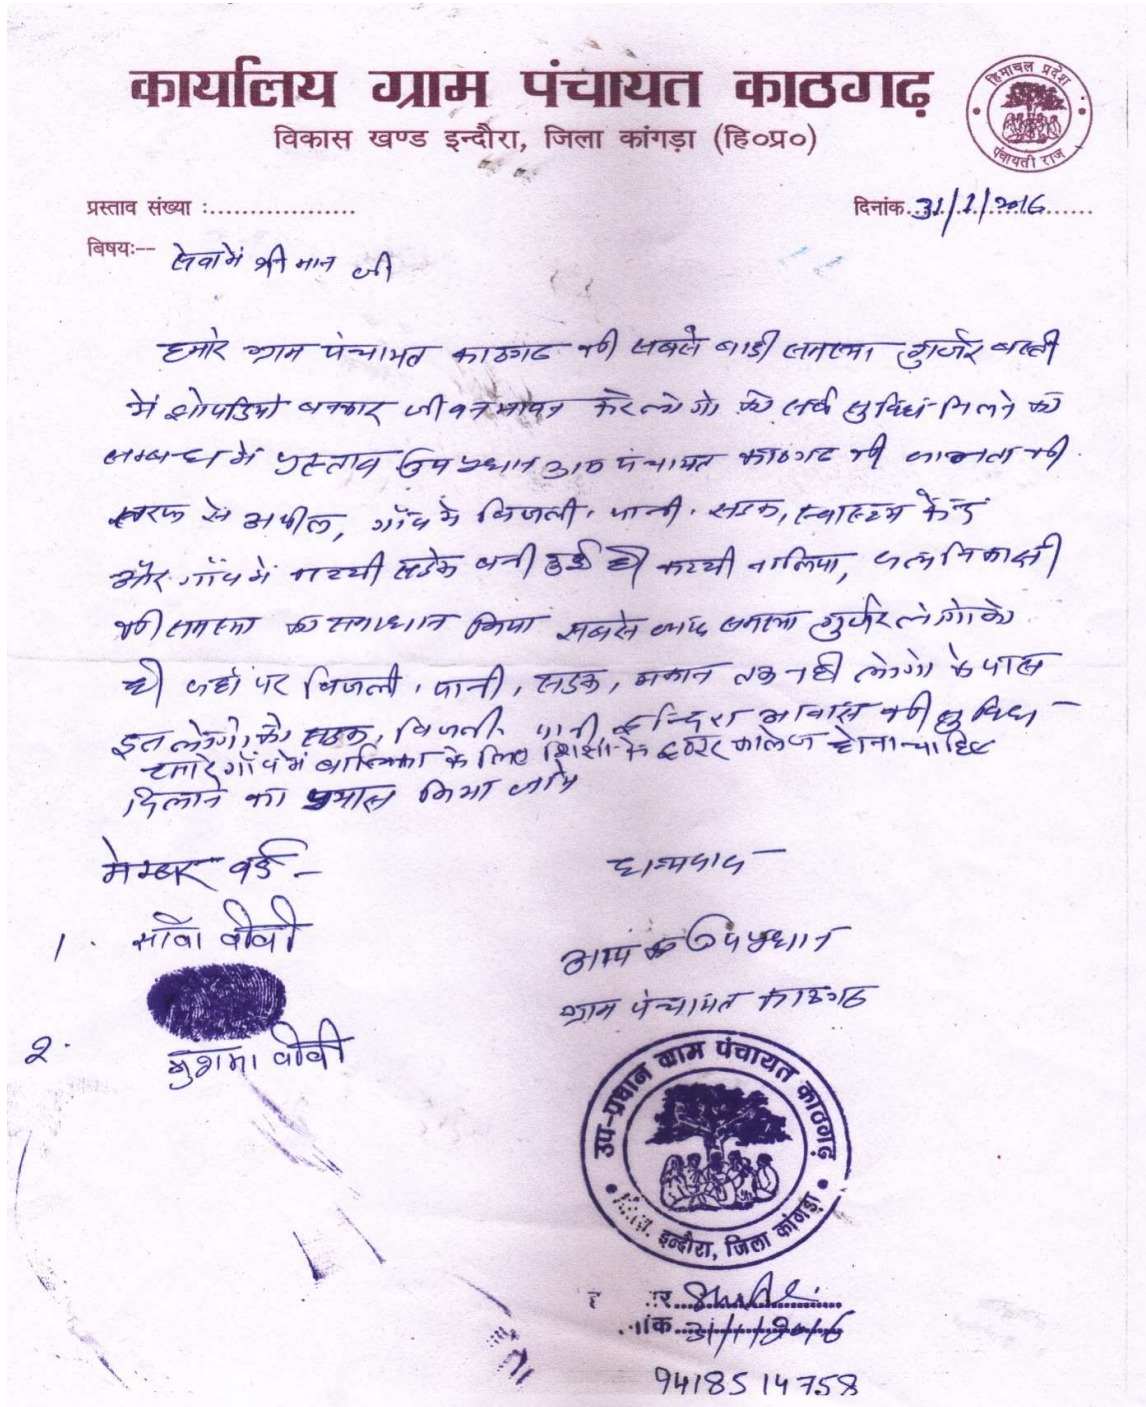 कार्यालय ग्राम पंचायत काठगढ़
विकास खण्ड इन्दौरा, जिला कांगड़ा (हि०प्र०)
हिमाचल प्रदेश
पंचायती राज
प्रस्ताव संख्या :..................
दिनांक..31/1/2016......
बिषयः-- सेवामें श्री मान जी
हमारे ग्राम पंचायत काठगढ की सबसे बाडी समस्या गुर्जर बस्ती
में झोपडियो बनाकार जीवन यापन कर लोगो को सर्व सुविधा मिलने को
सम्बन्ध में प्रस्ताव उपप्रधान ग्राम पंचायत काठगढ की जनता की
तरफ से अपील, गॉव में बिजली, पानी, सडक, स्वास्थ्य केन्द्र
और गॉव में कच्ची सडके बनी हुई है कच्ची नालिया, जल निकासी
की समस्या का समाधान किया सबसे समस्या गुर्जर लोगो को
है जहाँ पर बिजली, पानी, सडक, मकान तक नही लोगो के पास
इन लोगो को सडक, बिजली, पानी, इन्दिरा आवास की सुविधा
हमारे गॉव में बालिका के लिए शिक्षा के इण्टर कालेज होना चाहिए
दिलाने का प्रयास किया जाये
मेम्बर वर्ड -
धन्यवाद
1. वीवी
आप का उपप्रधान
ग्राम पंचायत काठगढ
2. वीवी
उप-प्रधान ग्राम पंचायत काठगढ़
इन्दौरा, जिला कांगड़ा
31/1/2016
9418514758